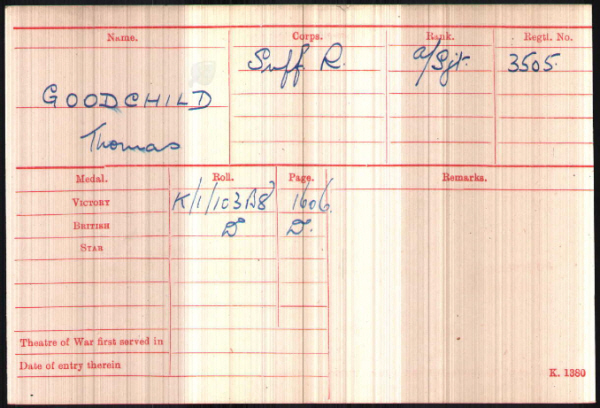 Name. Corps. Rank. Regtl. No.
Suff R. a/Sjt. 3505.
GOODCHILD
Thomas
Medal. Roll. Page. Remarks.
VICTORY K/1/103B8 1606.
BRITISH Do Do.
STAR
Theatre of War first served in
Date of entry therein
K. 1380